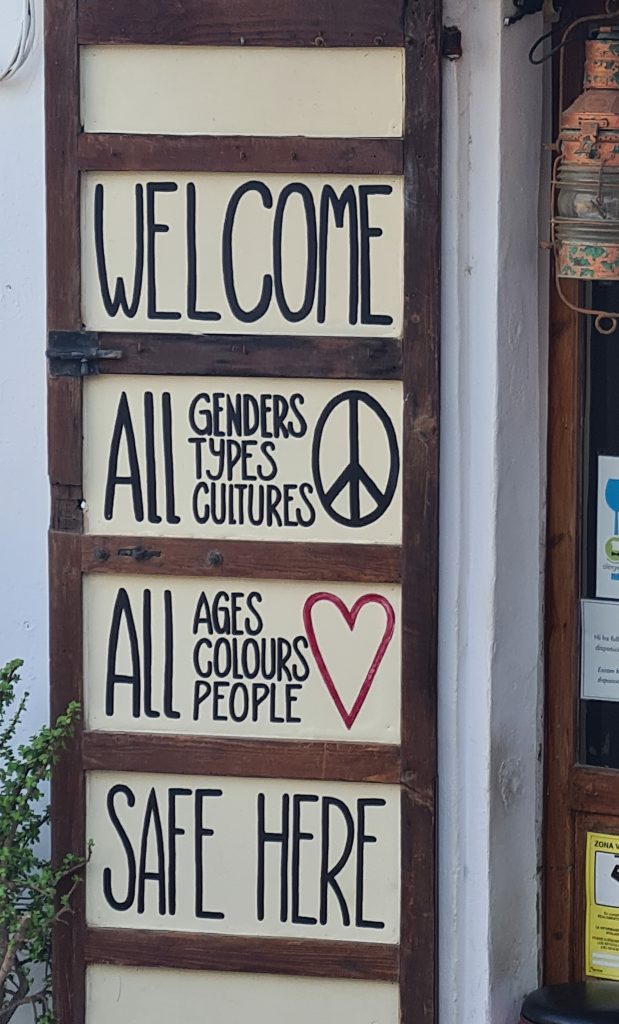 WELCOME
ALL GENDERS
TYPES
CULTURES
ALL AGES
COLOURS
PEOPLE
SAFE HERE
Hi ha full
ZONA V